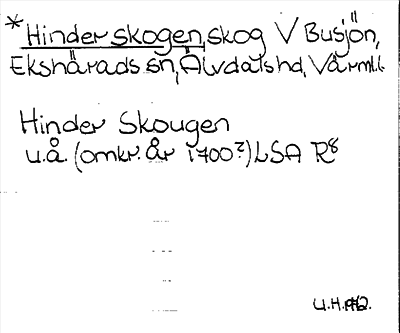 *Hinder skogen, skog V Busjön,
Ekshärads sn, Älvdals hd, Värml.
Hinder Skougen
u.å. (omkr. år 1700?) LSA R8
U.H.